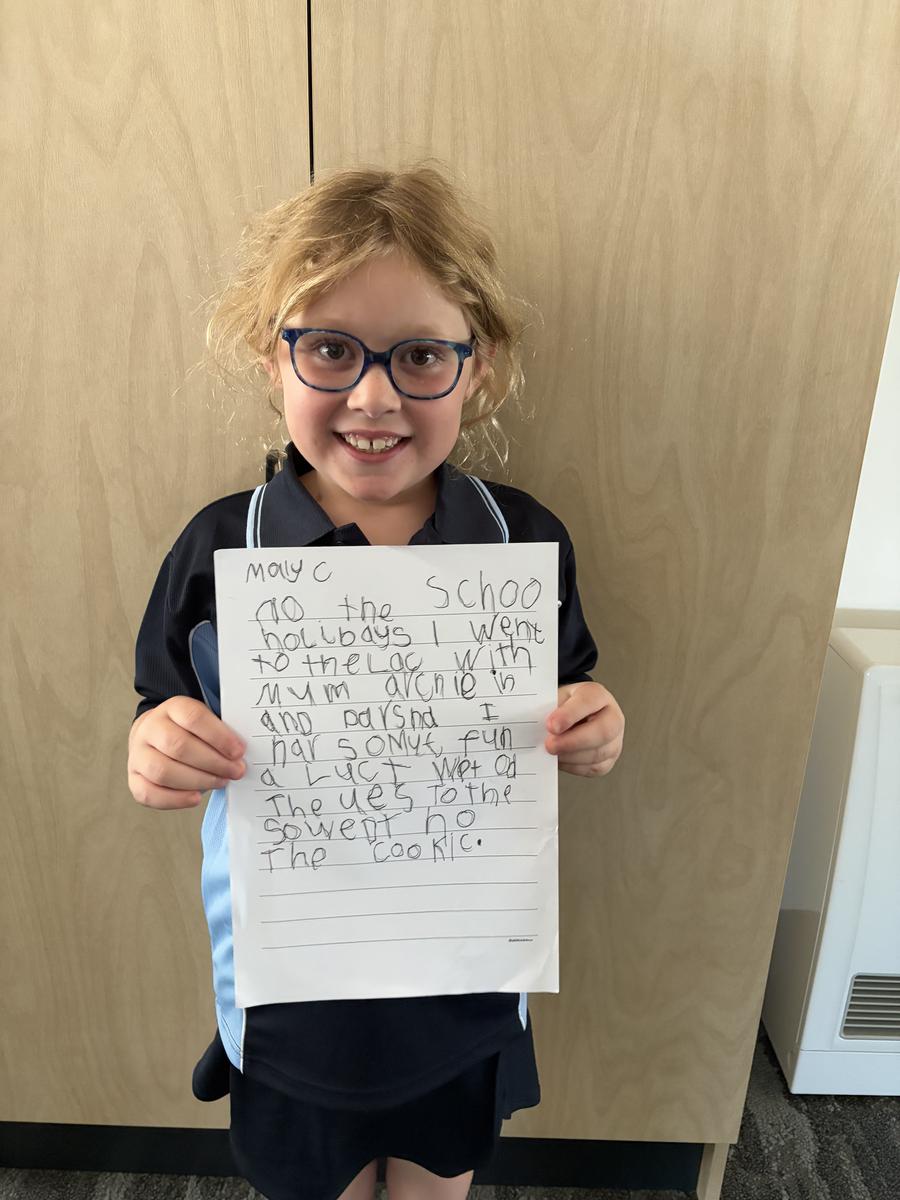 Maiy C
no the Schoo
holibays I went
to the Lac with
mum archie in
and darsnd I
har somut fun
a Luct wet od
The ues To the
sowent no
The cookic.